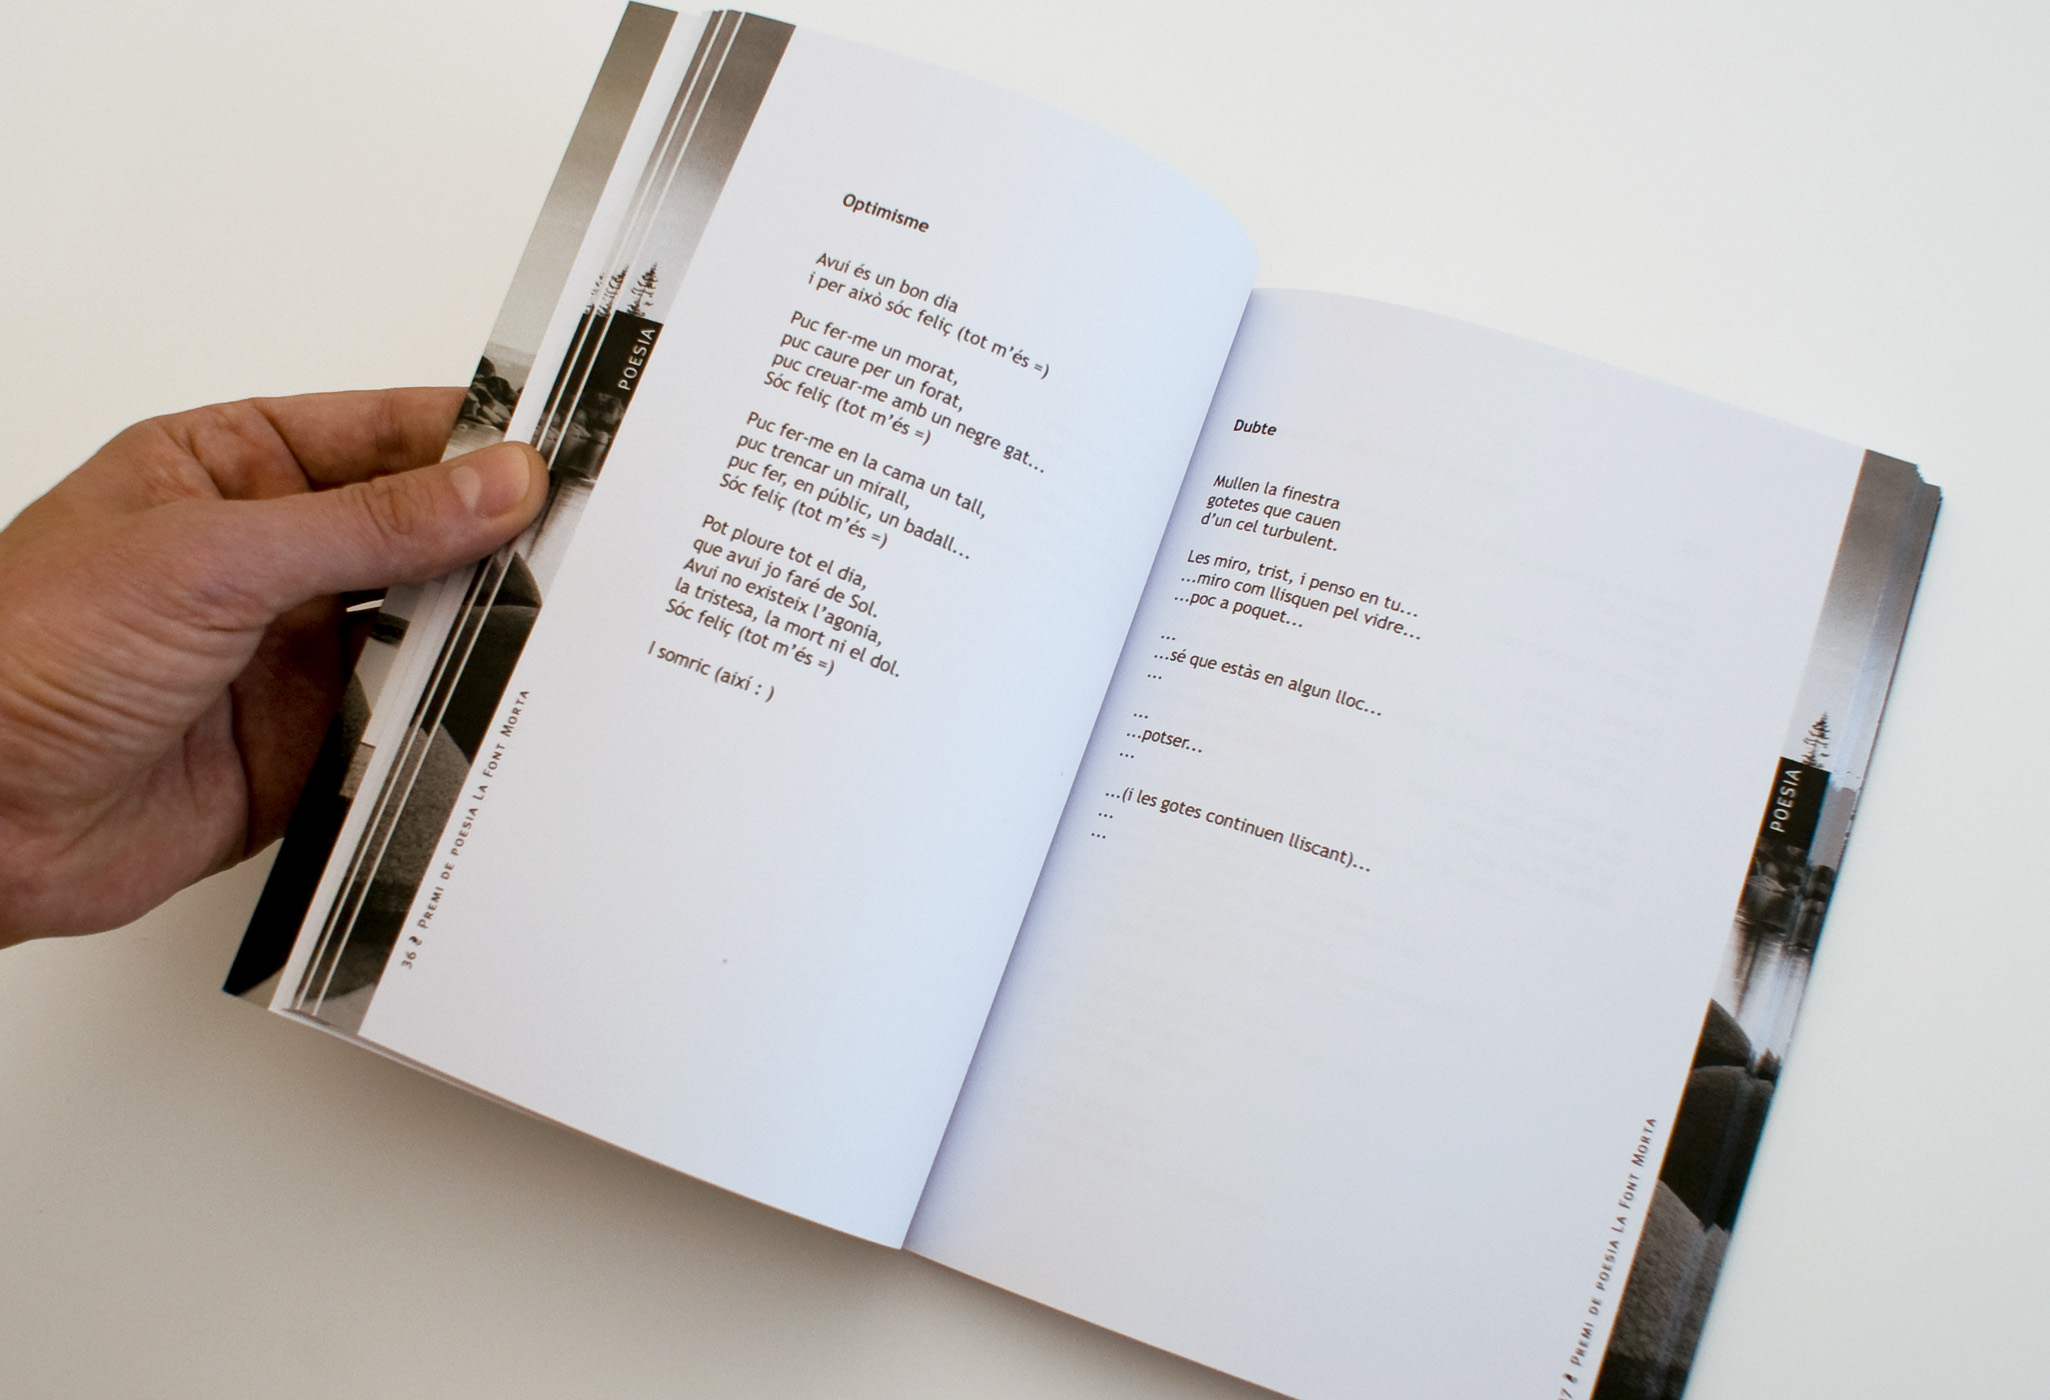 Optimisme
Avui és un bon dia
i per això sóc feliç (tot m'és =)
Puc fer-me un morat,
puc caure per un forat,
puc creuar-me amb un negre gat...
Sóc feliç (tot m'és =)
Puc fer-me en la cama un tall,
puc trencar un mirall,
puc fer, en públic, un badall...
Sóc feliç (tot m'és =)
Pot ploure tot el dia,
que avui jo faré de Sol.
Avui no existeix l'agonia,
la tristesa, la mort ni el dol.
Sóc feliç (tot m'és =)
I somric (així : )
POESIA
36 PREMI DE POESIA LA FONT MORTA
Dubte
Mullen la finestra
gotetes que cauen
d'un cel turbulent.
Les miro, trist, i penso en tu...
...miro com llisquen pel vidre...
...poc a poquet...
...
...sé que estàs en algun lloc...
...
...
...potser...
...
...(i les gotes continuen lliscant)...
...
...
POESIA
PREMI DE POESIA LA FONT MORTA